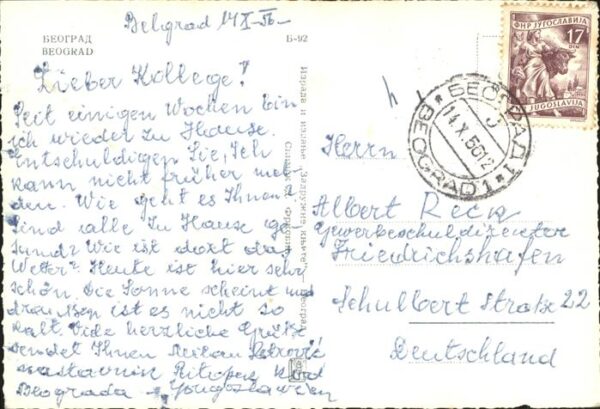 Belgrad 14 X - 56 -
БЕОГРАД
BEOGRAD
Б-92
Lieber Kollege!
Seit einigen Wochen bin
ich wieder zu Hause.
Entschuldigen Sie, Ich
kann nicht früher mel-
den. Wie geht es Ihnen?
Sind alle zu Hause ge-
sund? Wie ist dort das
Wetter? Heute ist hier sehr
schön. Die Sonne scheint und
draussen ist es nicht so
kalt. Viele herzliche Grüße
sendet Ihnen Milan Petrović
nastavnik kod
Beograda - Yougoslawien
Израда и издање Задружне књиге — Београд
ФНР ЈУГОСЛАВИЈА
17
DIN
JUGOSLAVIJA
БЕОГРАД 1
14 X 56 12
BEOGRAD 1
Herrn
Albert Reck
Gewerbeschuldirector
Friedrichshafen
Schulbert Straße 22
Deutschland